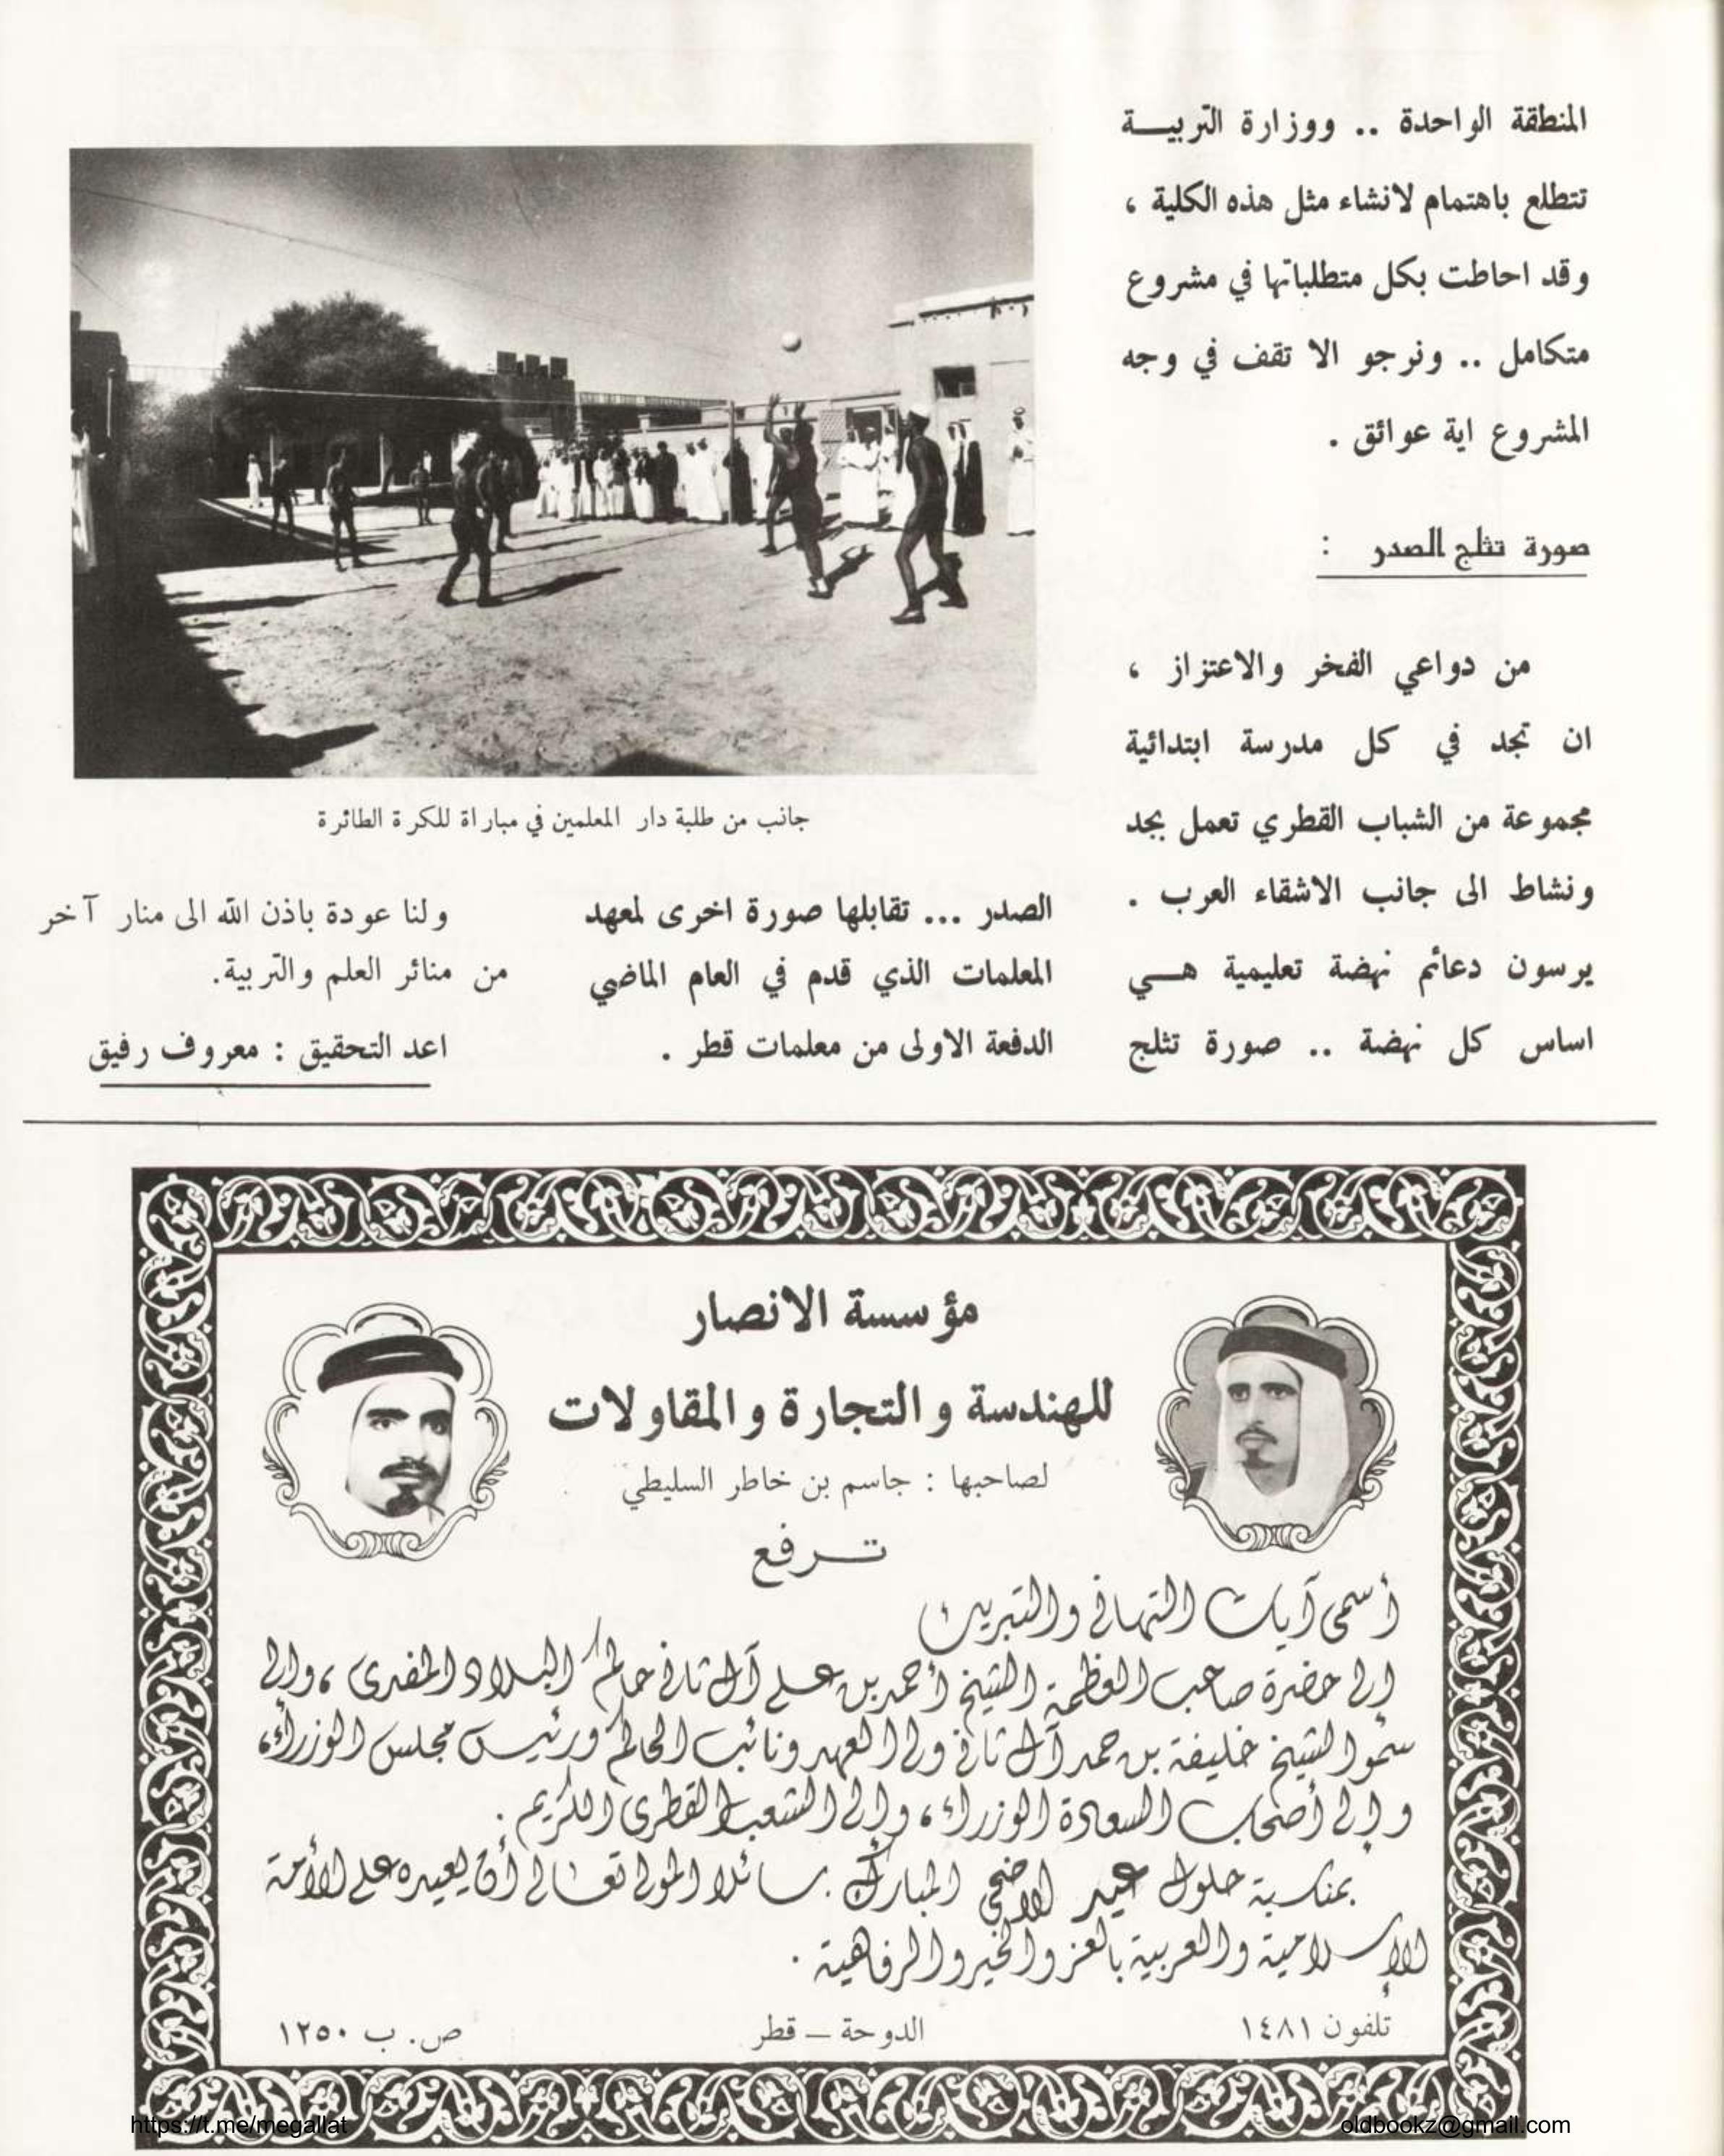 المنطقة الواحدة .. ووزارة التربيــة
تتطلع باهتمام لانشاء مثل هذه الكلية ،
وقد احاطت بكل متطلباتها في مشروع
متكامل .. ونرجو الا تقف في وجه
المشروع اية عوائق .
صورة تثلج الصدر :
من دواعي الفخر والاعتزاز ،
ان تجد في كل مدرسة ابتدائية
مجموعة من الشباب القطري تعمل بجد
ونشاط الى جانب الاشقاء العرب .
يرسون دعائم نهضة تعليمية هــي
اساس كل نهضة .. صورة تثلج
جانب من طلبة دار المعلمين في مباراة للكرة الطائرة
الصدر ... تقابلها صورة اخرى لمعهد
المعلمات الذي قدم في العام الماضي
الدفعة الاولى من معلمات قطر .
ولنا عودة باذن الله الى منار آخر
من منائر العلم والتربية.
اعد التحقيق : معروف رفيق
مؤسسة الانصار
للهندسة والتجارة والمقاولات
لصاحبها : جاسم بن خاطر السليطي
تــرفع
أسمى آيات التهاني والتبريك
إلى حضرة صاحب العظمة الشيخ أحمد بن علي آل ثاني حاكم البلاد المفدى ، وإلى
سمو الشيخ خليفة بن حمد آل ثاني ولي العهد ونائب الحاكم ورئيس مجلس الوزراء،
وإلى أصحاب السعادة الوزراء ، وإلى الشعب القطري الكريم .
بمناسبة حلول عيد الاضحى المبارك . سائلا المولى تعالى أن يعيده على الأمة
الإسلامية والعربية بالعز والخير والرفاهية .
تلفون ١٤٨١
الدوحة – قطر
ص. ب ١٢٥٠
https://t.me/megallat
oldbookz@gmail.com